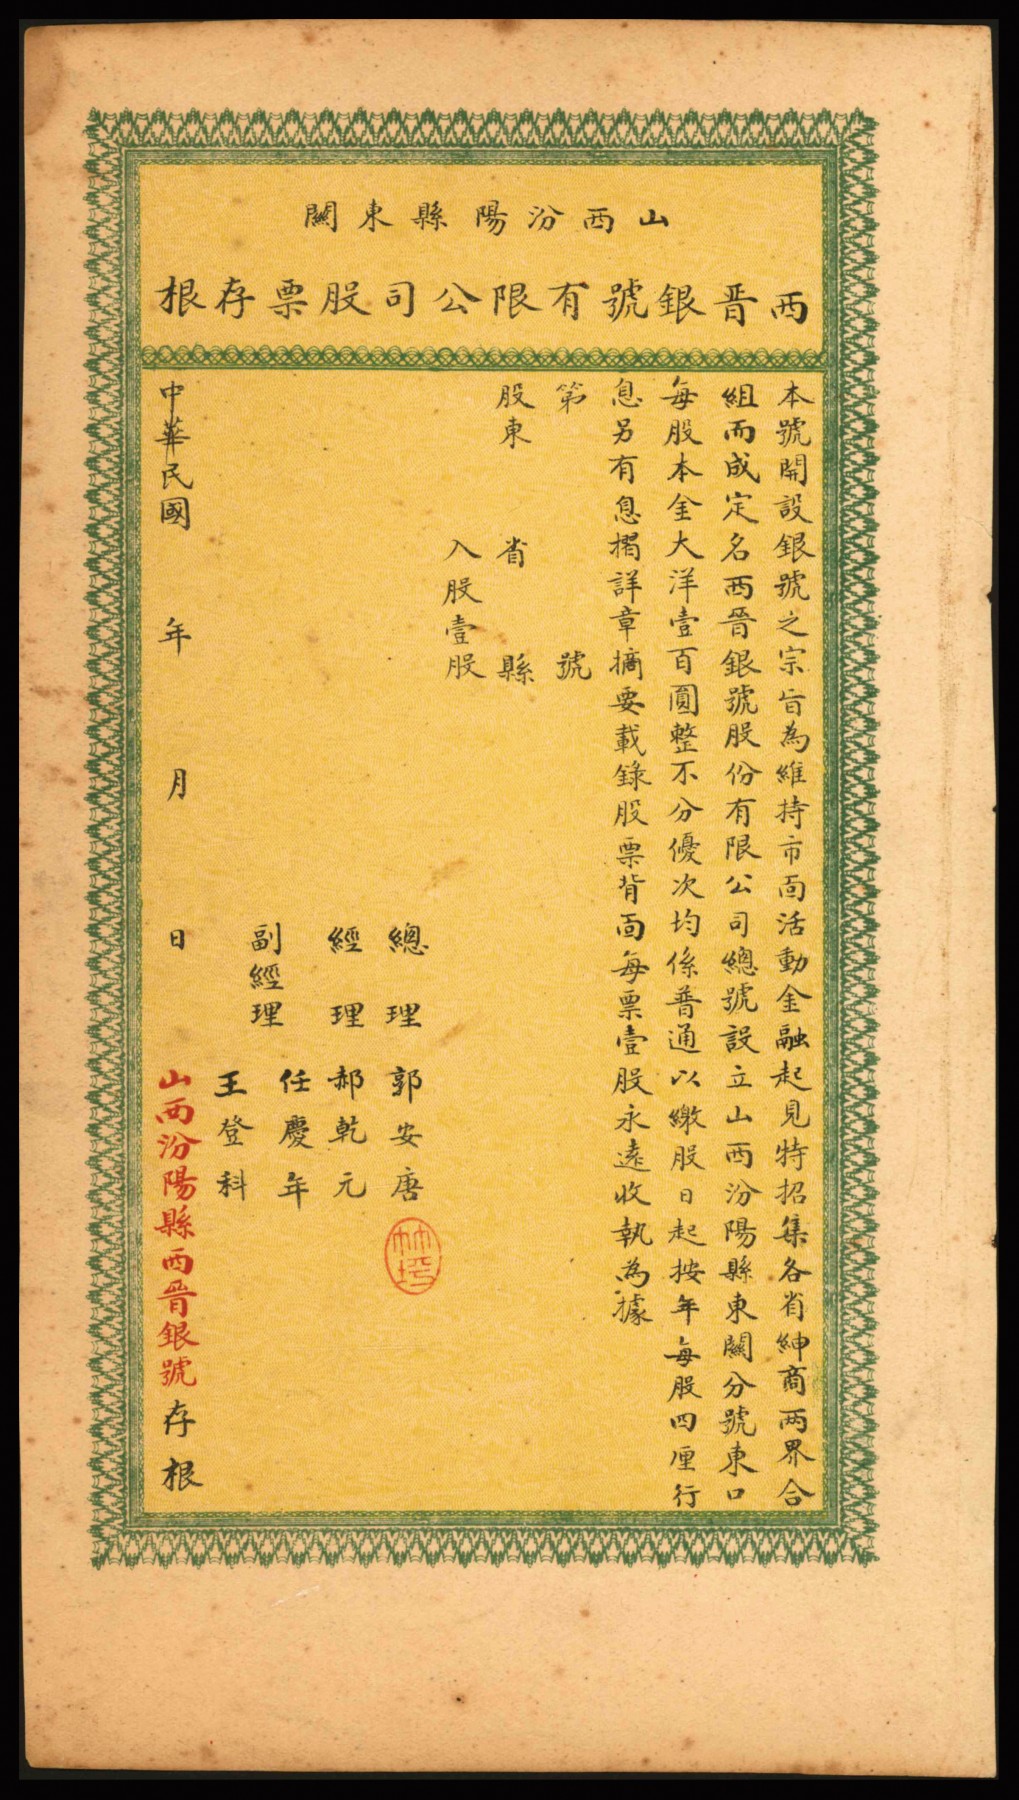 山西汾陽縣東關
西晉銀號有限公司股票存根
本號開設銀號之宗旨為維持市面活動金融起見特招集各省紳商兩界合
組而成定名西晉銀號股份有限公司總號設立山西汾陽縣東關分號東口
每股本金大洋壹百圓整不分優次均係普通以繳股日起按年每股四厘行
息另有息摺詳章摘要載錄股票背面每票壹股永遠收執為據
第 號
股東 省 縣
入股壹股
總理 郭安唐
經理 郝乾元
副經理 任慶年
王登科
中華民國 年 月 日
山西汾陽縣西晉銀號存根